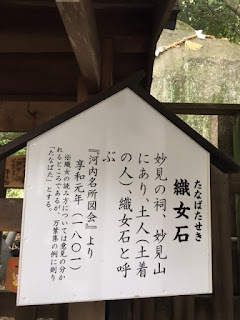 たなばたせき
織女石
妙見の祠、妙見山
にあり、土人(土着
の人)、織女石と呼
ぶ
『河内名所図会』より
享和元年(一八〇一)
※織女の読み方については意見の分か
れるところであるが、万葉集の例に則り
「たなばた」とする。